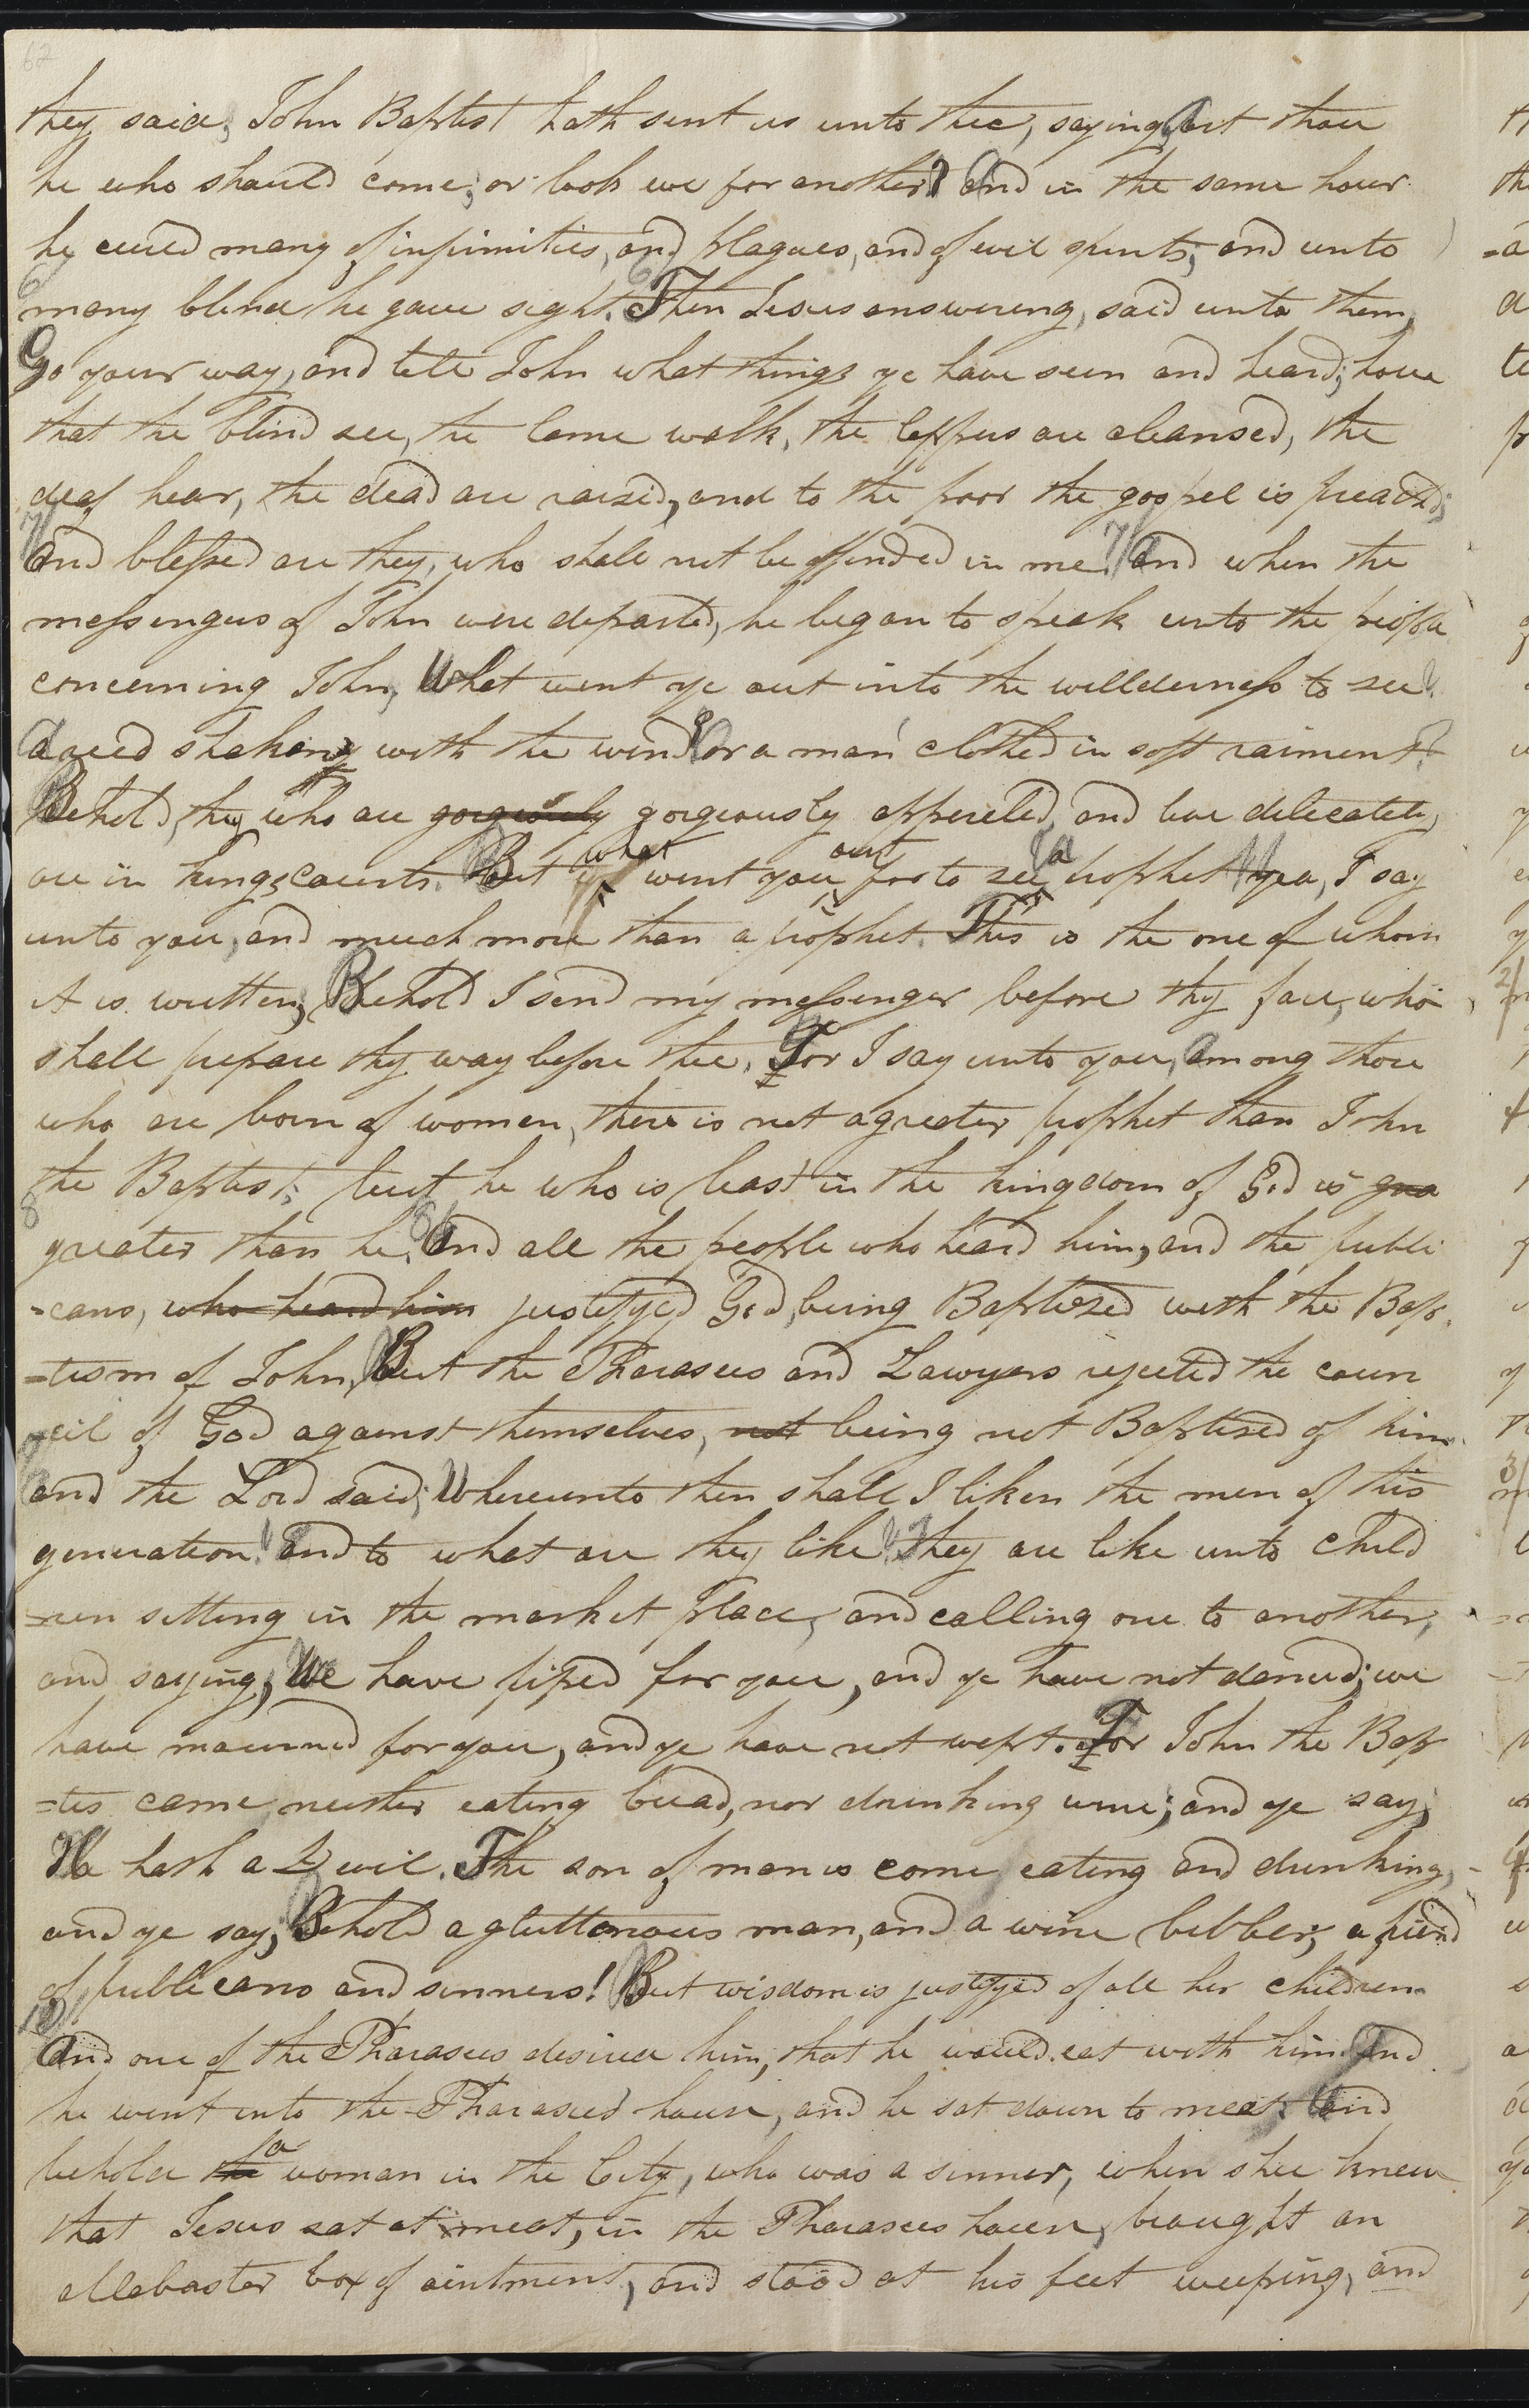 62
they said, John Baptist hath sent us unto thee, saying, Art thou
he who should come; or look we for another? And in the same hour
he cured many of infirmities, and plagues, and of evil spirits; and unto
6 many blind he gave sight. 6 Then Jesus answering, said unto them,
Go your way, and tell John what things ye have seen and heard; how
that the blind see, the lame walk, the leppers are cleansed, the
deaf hear, the dead are raised, and to the poor the gospel is preached;
7 And blessed are they, who shall not be offended in me. 7 And when the
messengers of John were departed, he began to speak unto the people
concerning John, What went ye out into the willderness to see?
A reed shaken with the wind? Or a man clothed in soft raiment?
Behold, they who are gorgeously gorgeously appereled, and live delicately,
are in kings courts. But what went you out for to see? a prophet? yea, I say
unto you, and much more than a prophet. This is the one of whom
it is written, Behold I send my messenger before thy face, who
shall prepare thy way before thee. For I say unto you, among those
who are born of women, there is not a greater prophet than John
the Baptist; but he who is least in the kingdom of God is grea
8 greater than he. 8 And all the people who heard him, and the publi
=cans, who heard him justifyed God, being Baptized with the Bap
=tism of John, But the Pharasees and Lawyers rejected the coun
cil of God against themselves, not being not Baptized of him.
9 And the Lord said; Whereunto then shall I liken the men of this
generation? And to what are they like? They are like unto child
=ren sitting in the market place, and calling one to another,
and saying, We have piped for you, and ye have not danced; we
have mourned for you, and ye have not wept. For John the Bap
=tis came neither eating bread, nor drinking wine; and ye say,
He hath a Devil. The son of man is come eating and drinking,
and ye say; Behold a gluttonous man, and a wine bibber; a friend
of publicans and sinners! But wisdom is justifyed of all her children.
10 And one of the Pharasees desired him, that he would eat with him. And
he went into the Pharasees house, and he sat down to meat. And
behold the a woman in the City, who was a sinner, when shee knew
that Jesus sat at meat, in the Pharasees house, brought an
allabaster box of ointment, and stood at his feet weeping, and